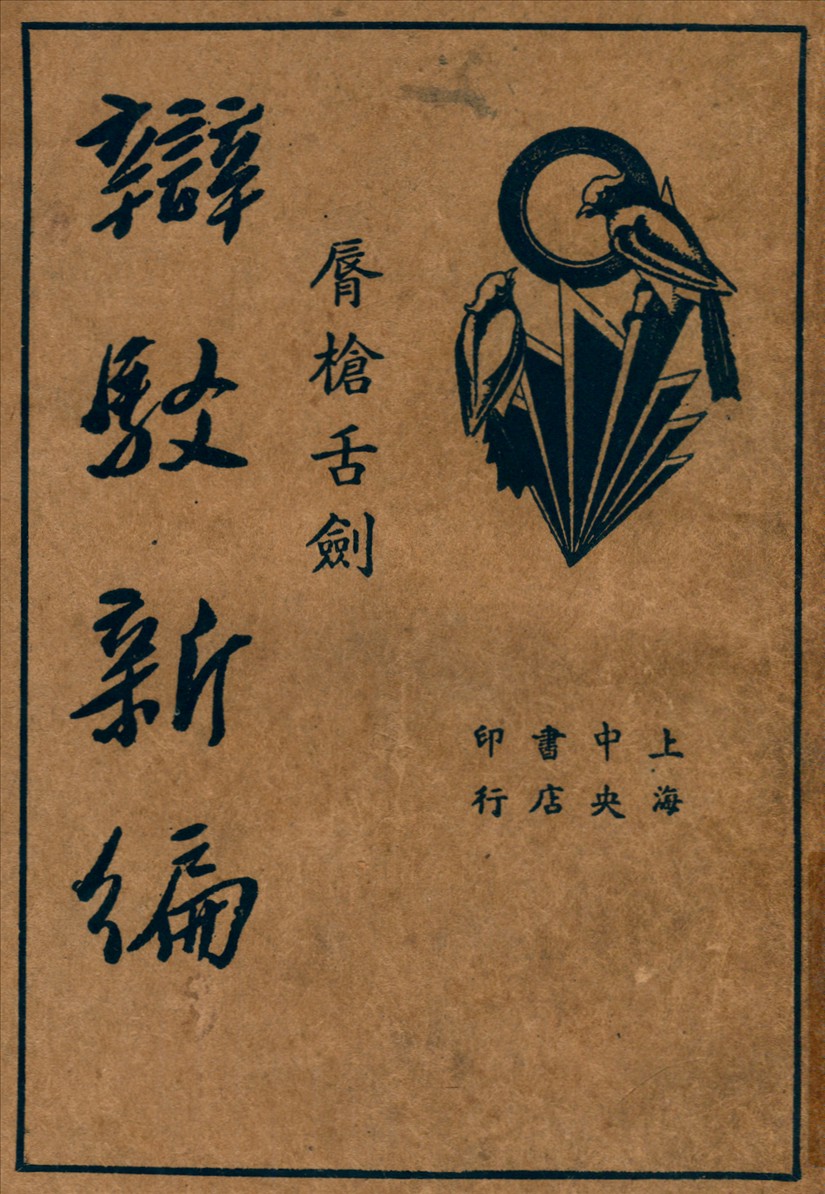 上海
中央
書店
印行
脣槍舌劍
辯駁新編